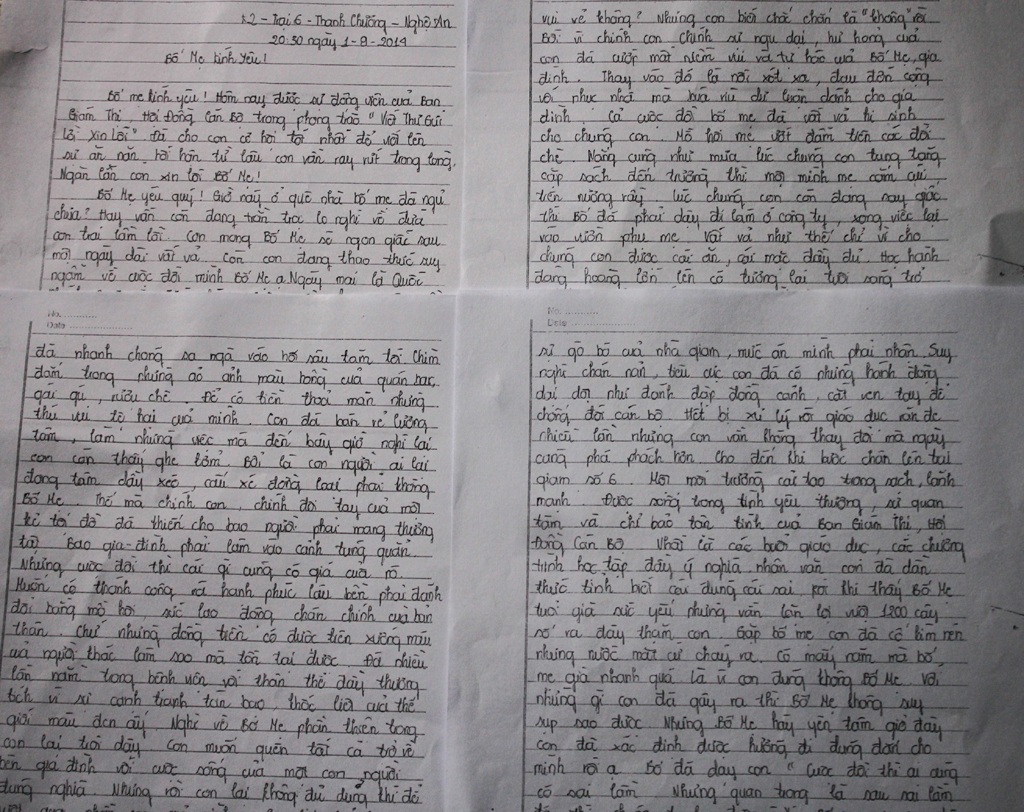 K2 - Trại 6 - Thanh Chương - Nghệ An
20:30 ngày 1-9-2014
Bố Mẹ kính yêu!
Bố mẹ kính yêu! Hôm nay được sự động viên của Ban
Giám Thị, Hội Đồng Cán Bộ trong phong trào "Viết Thư Gửi
Lời Xin Lỗi" Đã cho con cơ hội tốt nhất để nói lên
sự ăn năn, hối hận từ lâu con vẫn ray rứt trong lòng.
Ngàn lần con xin lỗi Bố Mẹ!
Bố Mẹ yêu quý! Giờ này ở quê nhà bố mẹ đã ngủ
chưa? Hay vẫn còn đang trằn trọc lo nghĩ về đứa
con trai lầm lỗi. Con mong Bố Mẹ sẽ ngon giấc sau
một ngày dài vất vả. Còn con đang thao thức suy
ngẫm về cuộc đời mình Bố Mẹ ạ. Ngày mai là Quốc
vui vẻ không? Nhưng con biết chắc chắn là "không" rồi
Bởi vì chính con chính sự ngu dại, hư hỏng của
con đã cướp mất niềm vui và tự hào của Bố Mẹ, gia
đình. Thay vào đó là nỗi xót xa, đau đớn cộng
với nhục nhã mà búa rìu dư luận dành cho gia
đình. Cả cuộc đời bố mẹ đã vất vả hi sinh
cho chúng con. Mồ hôi mẹ ướt đẫm trên các đồi
chè. Nắng cũng như mưa lúc chúng con tung tăng
cặp sách đến trường thì một mình mẹ cặm cụi
trên nương rẫy. lúc chúng con còn đang say giấc
thì Bố đã phải dậy đi làm ở công ty, xong việc lại
vào vườn phụ mẹ. Vất vả như thế chỉ vì cho
chúng con được cái ăn, cái mặc đầy đủ. Học hành
đàng hoàng lớn lên có tương lai tươi sáng. trở
đã nhanh chóng sa ngã vào hố sâu tăm tối Chìm
đắm trong những ảo ảnh màu hồng của quán bar,
gái gú, rượu chè. Để có tiền thoả mãn những
thú vui tệ hại của mình. Con đã bán rẻ lương
tâm, làm những việc mà đến bây giờ nghĩ lại
con còn thấy ghê tởm. Bởi là con người ai lại
đang tâm dày xéo, cấu xé đồng loại phải không
Bố Mẹ. Thế mà chính con, chính đôi tay của một
kẻ tội đồ đã khiến cho bao người phải mang thương
tật. Bao gia-đình phải lâm vào cảnh túng quẫn.
Nhưng cuộc đời thì cái gì cũng có giá của nó.
Muốn có thành công và hạnh phúc lâu bền phải đánh
đổi bằng mồ hôi sức lao động chân chính của bản
thân. Chứ những đồng tiền có được trên xương máu
của người khác làm sao mà tồn tại được. Đã nhiều
lần nằm trong bệnh viện với thân thể đầy thương
tích vì sự cạnh tranh tàn bạo, khốc liệt của thế
giới màu đen ấy. Nghĩ về Bố Mẹ phần thiện trong
con lại trỗi dậy. Con muốn quên tất cả trở về
bên gia đình với cuộc sống của một con người
đúng nghĩa. Nhưng rồi con lại không đủ dũng khí để
sự gò bó của nhà giam, mức án mình phải nhận. Suy
nghĩ chán nản, tiêu cực con đã có những hành động
dại dột như đánh đập đồng cảnh, cắt ven tay để
chống đối cán bộ. Hết bị xử lý rồi giáo dục răn đe
nhiều lần nhưng con vẫn không thay đổi mà ngày
càng phá phách hơn. Cho đến khi bước chân lên trại
giam số 6. Một môi trường cải tạo trong sạch, lành
mạnh. Được sống trong tình yêu thương, sự quan
tâm và chỉ bảo tận tình của Ban Giám Thị, Hội
Đồng Cán Bộ. Nhất là các buổi giáo dục, các chương
trình học tập đầy ý nghĩa, nhân văn con đã dần
thức tỉnh biết cái đúng cái sai. Rồi khi thấy Bố Mẹ
tuổi già sức yếu nhưng vẫn lặn lội vượt 1200 cây
số ra đây thăm con. Gặp bố mẹ con đã cố kìm nén
nhưng nước mắt cứ chảy ra. Có mấy năm mà bố
mẹ già nhanh quá là vì con đúng không Bố Mẹ. Với
những gì con đã gây ra thì Bố Mẹ không suy
sụp sao được. Nhưng Bố Mẹ hãy yên tâm giờ đây
con đã xác định được hướng đi đúng đắn cho
mình rồi ạ. Bố đã dạy con "Cuộc đời thì ai cũng
có sai lầm. Nhưng quan trọng là sau sai lầm